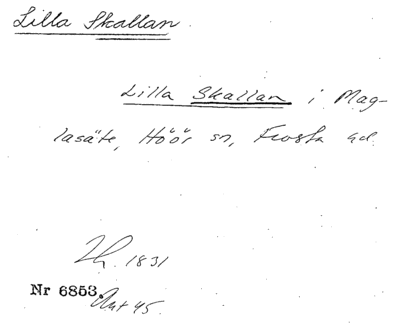 Lilla Skallan
Lilla Skallan i Mag-
lasäte, Höör sn, Frosta hd.
1831
Nr 6853.